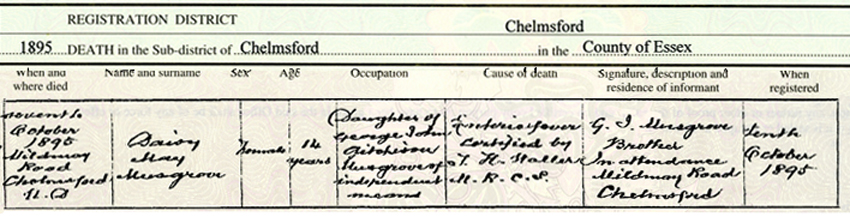 REGISTRATION DISTRICT
Chelmsford
1895 DEATH in the Sub-district of Chelmsford in the County of Essex
when and where died
Name and surname
Sex
Age
Occupation
Cause of death
Signature, description and residence of informant
When registered
October
1895
Mildmay
Road
Chelmsford
U. D
Daisy
May
Musgrove
Female
14
years
Daughter of
George John
Musgrove of
independent
means
Enteric fever
Certified by
Waller
M. R. C. S.
G. J. Musgrove
Brother
In attendance
Mildmay Road
Chelmsford
Tenth
October
1895